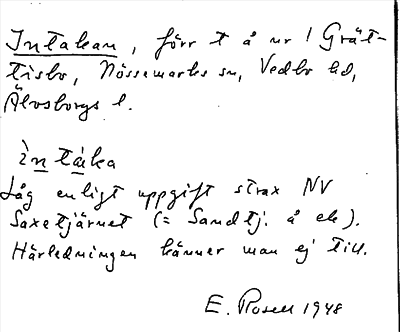 Intakan, förr t å nr 1 Grät-
tisbo, Nössemarks sn, Vedbo hd,
Älvsborgs l.
ìntáka
Låg enligt uppgift strax NV
Saxetjärnet (= Sandtj. å ek).
Härledningen känner man ej till.
E. Rosell 1948